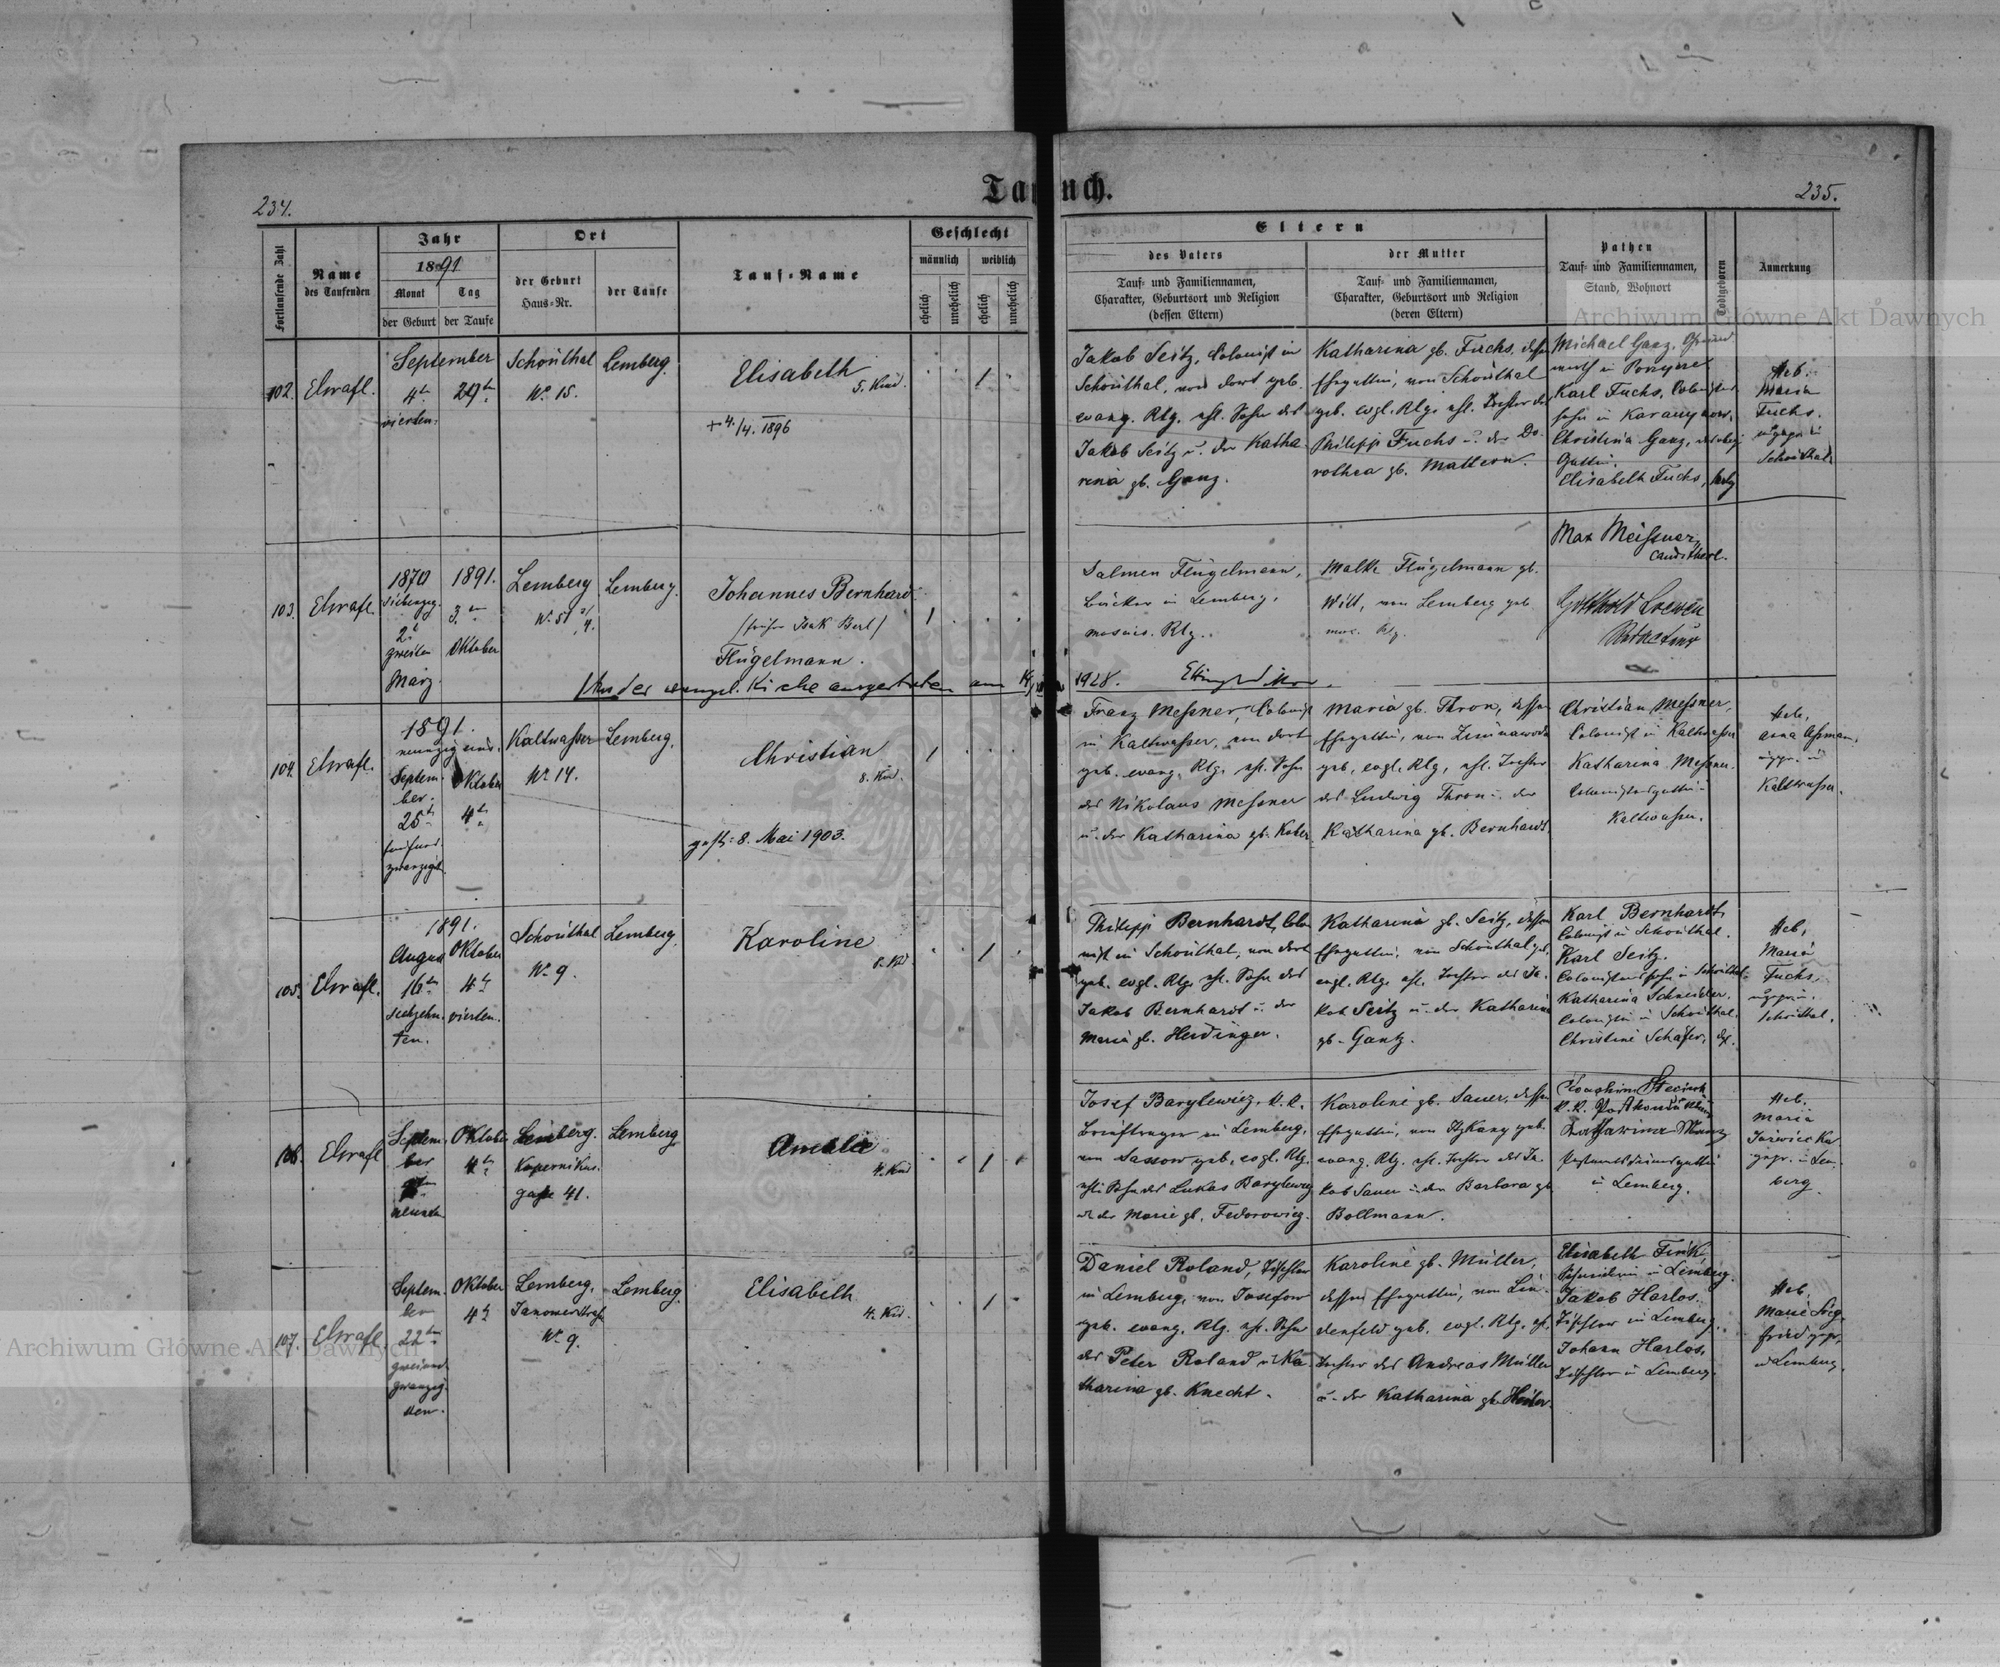 Taufbuch.
234.
235.
Fortlaufende Zahl
Name
des Taufenden
Jahr
1891
Monat
Tag
der Geburt
der Taufe
Ort
der Geburt
Haus=Nr.
der Taufe
Tauf=Name
Geschlecht
männlich
weiblich
ehelich
unehelich
ehelich
unehelich
Eltern
des Vaters
Tauf= und Familiennamen,
Charakter, Geburtsort und Religion
(dessen Eltern)
der Mutter
Tauf= und Familiennamen,
Charakter, Geburtsort und Religion
(deren Eltern)
Pathen
Tauf= und Familiennamen,
Stand, Wohnort
Todtgeboren
Anmerkung
Archiwum Główne Akt Dawnych
102.
September
4te
vierten.
29te
Schönthal
No 15.
Lemberg.
Elisabeth
5. Kind.
+ 4./4. 1896
Jakob Seitz, Colonist in
Schönthal, von dort geb.
evang. Rlg. ehl. Sohn des
Jakob Seitz u. der Katha-
rina gb. Ganz.
Katharina gb. Fuchs, dessen
Ehegattin, von Schönthal
geb. evgl. Rlg. ehl. Tochter des
Philipp Fuchs u. der Do-
rothea gb. Mattern.
Michael Ganz,
Karl Fuchs,
Christina Ganz,
Gattin.
Elisabeth Fuchs,
Heb.
Maria
Fuchs.
Schönthal.
103.
1870
siebenzig.
2te
zweiten
März.
1891.
3.
Oktober
Lemberg
Lemberg.
Johannes Bernhard
(früher Isak Berl)
Flügelmann.
Aus der evangel. Kirche ausgetreten am
1928.
Salmen Flügelmann,
Bäcker in Lemberg,
mosais. Rlg.
Malke Flügelmann gb.
Wild, von Lemberg geb.
mos. Rlg.
Max Meißner,
cand. theol.
104.
1891.
neunzig eins.
Septem-
ber.
25te
fünfund-
zwanzigst.
Oktober
4te
Kaltwasser
No 14.
Lemberg.
Christian
8. Kind.
gest: 8. Mai 1903.
Franz Messner, Colonist
in Kaltwasser, von dort
geb. evang. Rlg. ehl. Sohn
des Nikolaus Messner
u. der Katharina gb. Kober.
Maria gb. Thron, dessen
Ehegattin, von Zimnawoda
geb. evgl. Rlg. ehl. Tochter
des Ludwig Thron u. der
Katharina gb. Bernhardt.
Christian Messner,
Colonist in Kaltwasser
Katharina Messner.
Colonistensgattin in
Kaltwasser.
Heb.
Kaltwasser.
105.
1891.
August
16ten
sechzehn-
ten.
Oktober
4te
vierten.
Schönthal
No 9.
Lemberg.
Karoline
Philipp Bernhardt, Colo-
nist in Schönthal, von dort
geb. evgl. Rlg. ehl. Sohn des
Jakob Bernhardt u. der
Maria gb. Heidinger.
Katharina gb. Seitz, dessen
Ehegattin, von Schönthal geb.
evgl. Rlg. ehl. Tochter des Ja-
kob Seitz u. der Katharina
gb. Gantz.
Karl Bernhardt,
Colonist in Schönthal.
Karl Seitz.
Colonistensohn in Schönthal.
Katharina Schneider.
Colonistin in Schönthal.
Christine Schäfer,
Heb.
Maria
Fuchs,
Schönthal.
106.
Septem-
ber
neunten
Oktober
4te
Lemberg.
Kopernikus-
gasse 41.
Lemberg.
Amalie
4. Kind
Josef Barylewicz, k. k.
Briefträger in Lemberg,
von Sassow geb. evgl. Rlg.
ehl. Sohn des Lukas Barylewicz
u. der Marie gb. Fedorowicz.
Karoline gb. Sauer, dessen
Ehegattin, von geb.
evang. Rlg. ehl. Tochter des Ja-
kob Sauer u. der Barbara gb.
Bollmann.
Joachim
k. k.
Katharina
in Lemberg.
Heb.
Maria
gepr. in Lem-
berg.
107.
Septem-
ber
22ten
zweiund-
zwanzig-
sten.
Oktober
4te
Lemberg,
Janowerstraße
No 9.
Lemberg.
Elisabeth
4. Kind.
Daniel Roland, Tischler
in Lemberg, von Josefow
geb. evang. Rlg. ehl. Sohn
des Peter Roland u. Ka-
tharina gb. Knecht.
Karoline gb. Müller,
dessen Ehegattin, von Lin-
denfeld geb. evgl. Rlg. ehl.
Tochter des Andreas Müller
u. der Katharina gb.
Elisabeth Fink,
in Lemberg.
Jakob Harlos.
Tischler in Lemberg.
Johann Harlos,
Tischler in Lemberg.
Heb.
Marie Sieg-
fried gepr.
in Lemberg.
Archiwum Główne Akt Dawnych